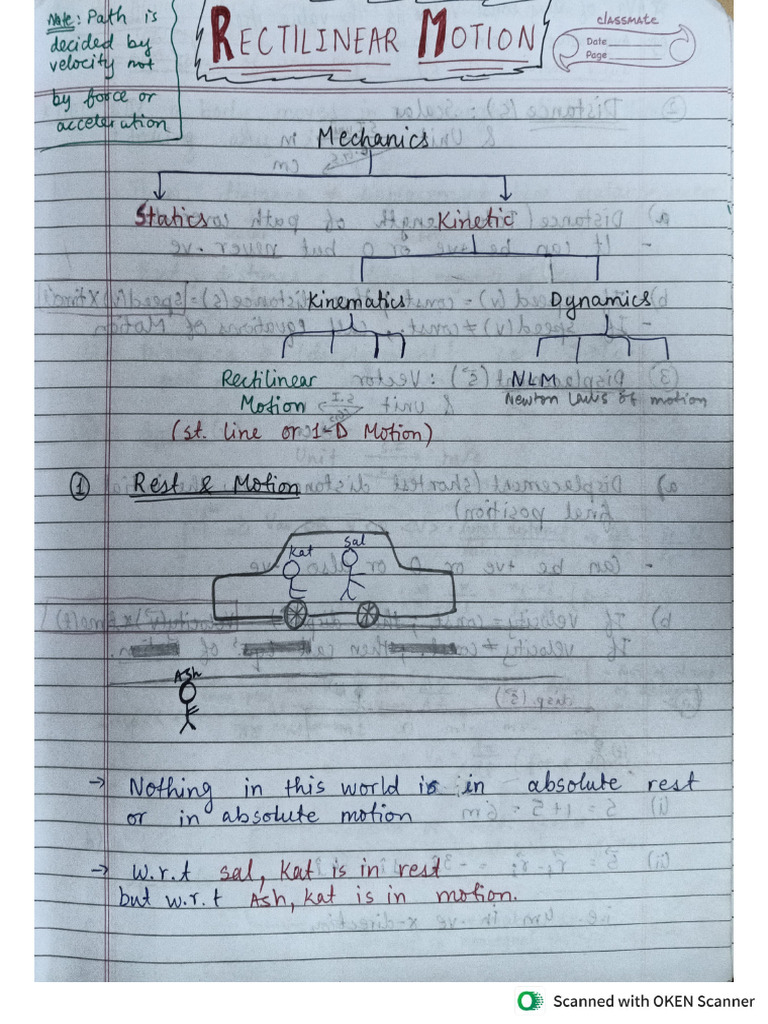 Note: Path is
decided by
velocity not
by force or
acceleration
RECTILINEAR MOTION
classmate
Date
Page
Mechanics
Statics
Kinetic
Kinematics
Dynamics
Rectilinear
Motion
(st. line or 1-D Motion)
NLM
Newton Laws of motion
① Rest & Motion
Kat
Sal
Ash
→ Nothing in this world is in absolute rest
or in absolute motion
→ w.r.t Sal, Kat is in rest
but w.r.t Ash, Kat is in motion.
Scanned with OKEN Scanner